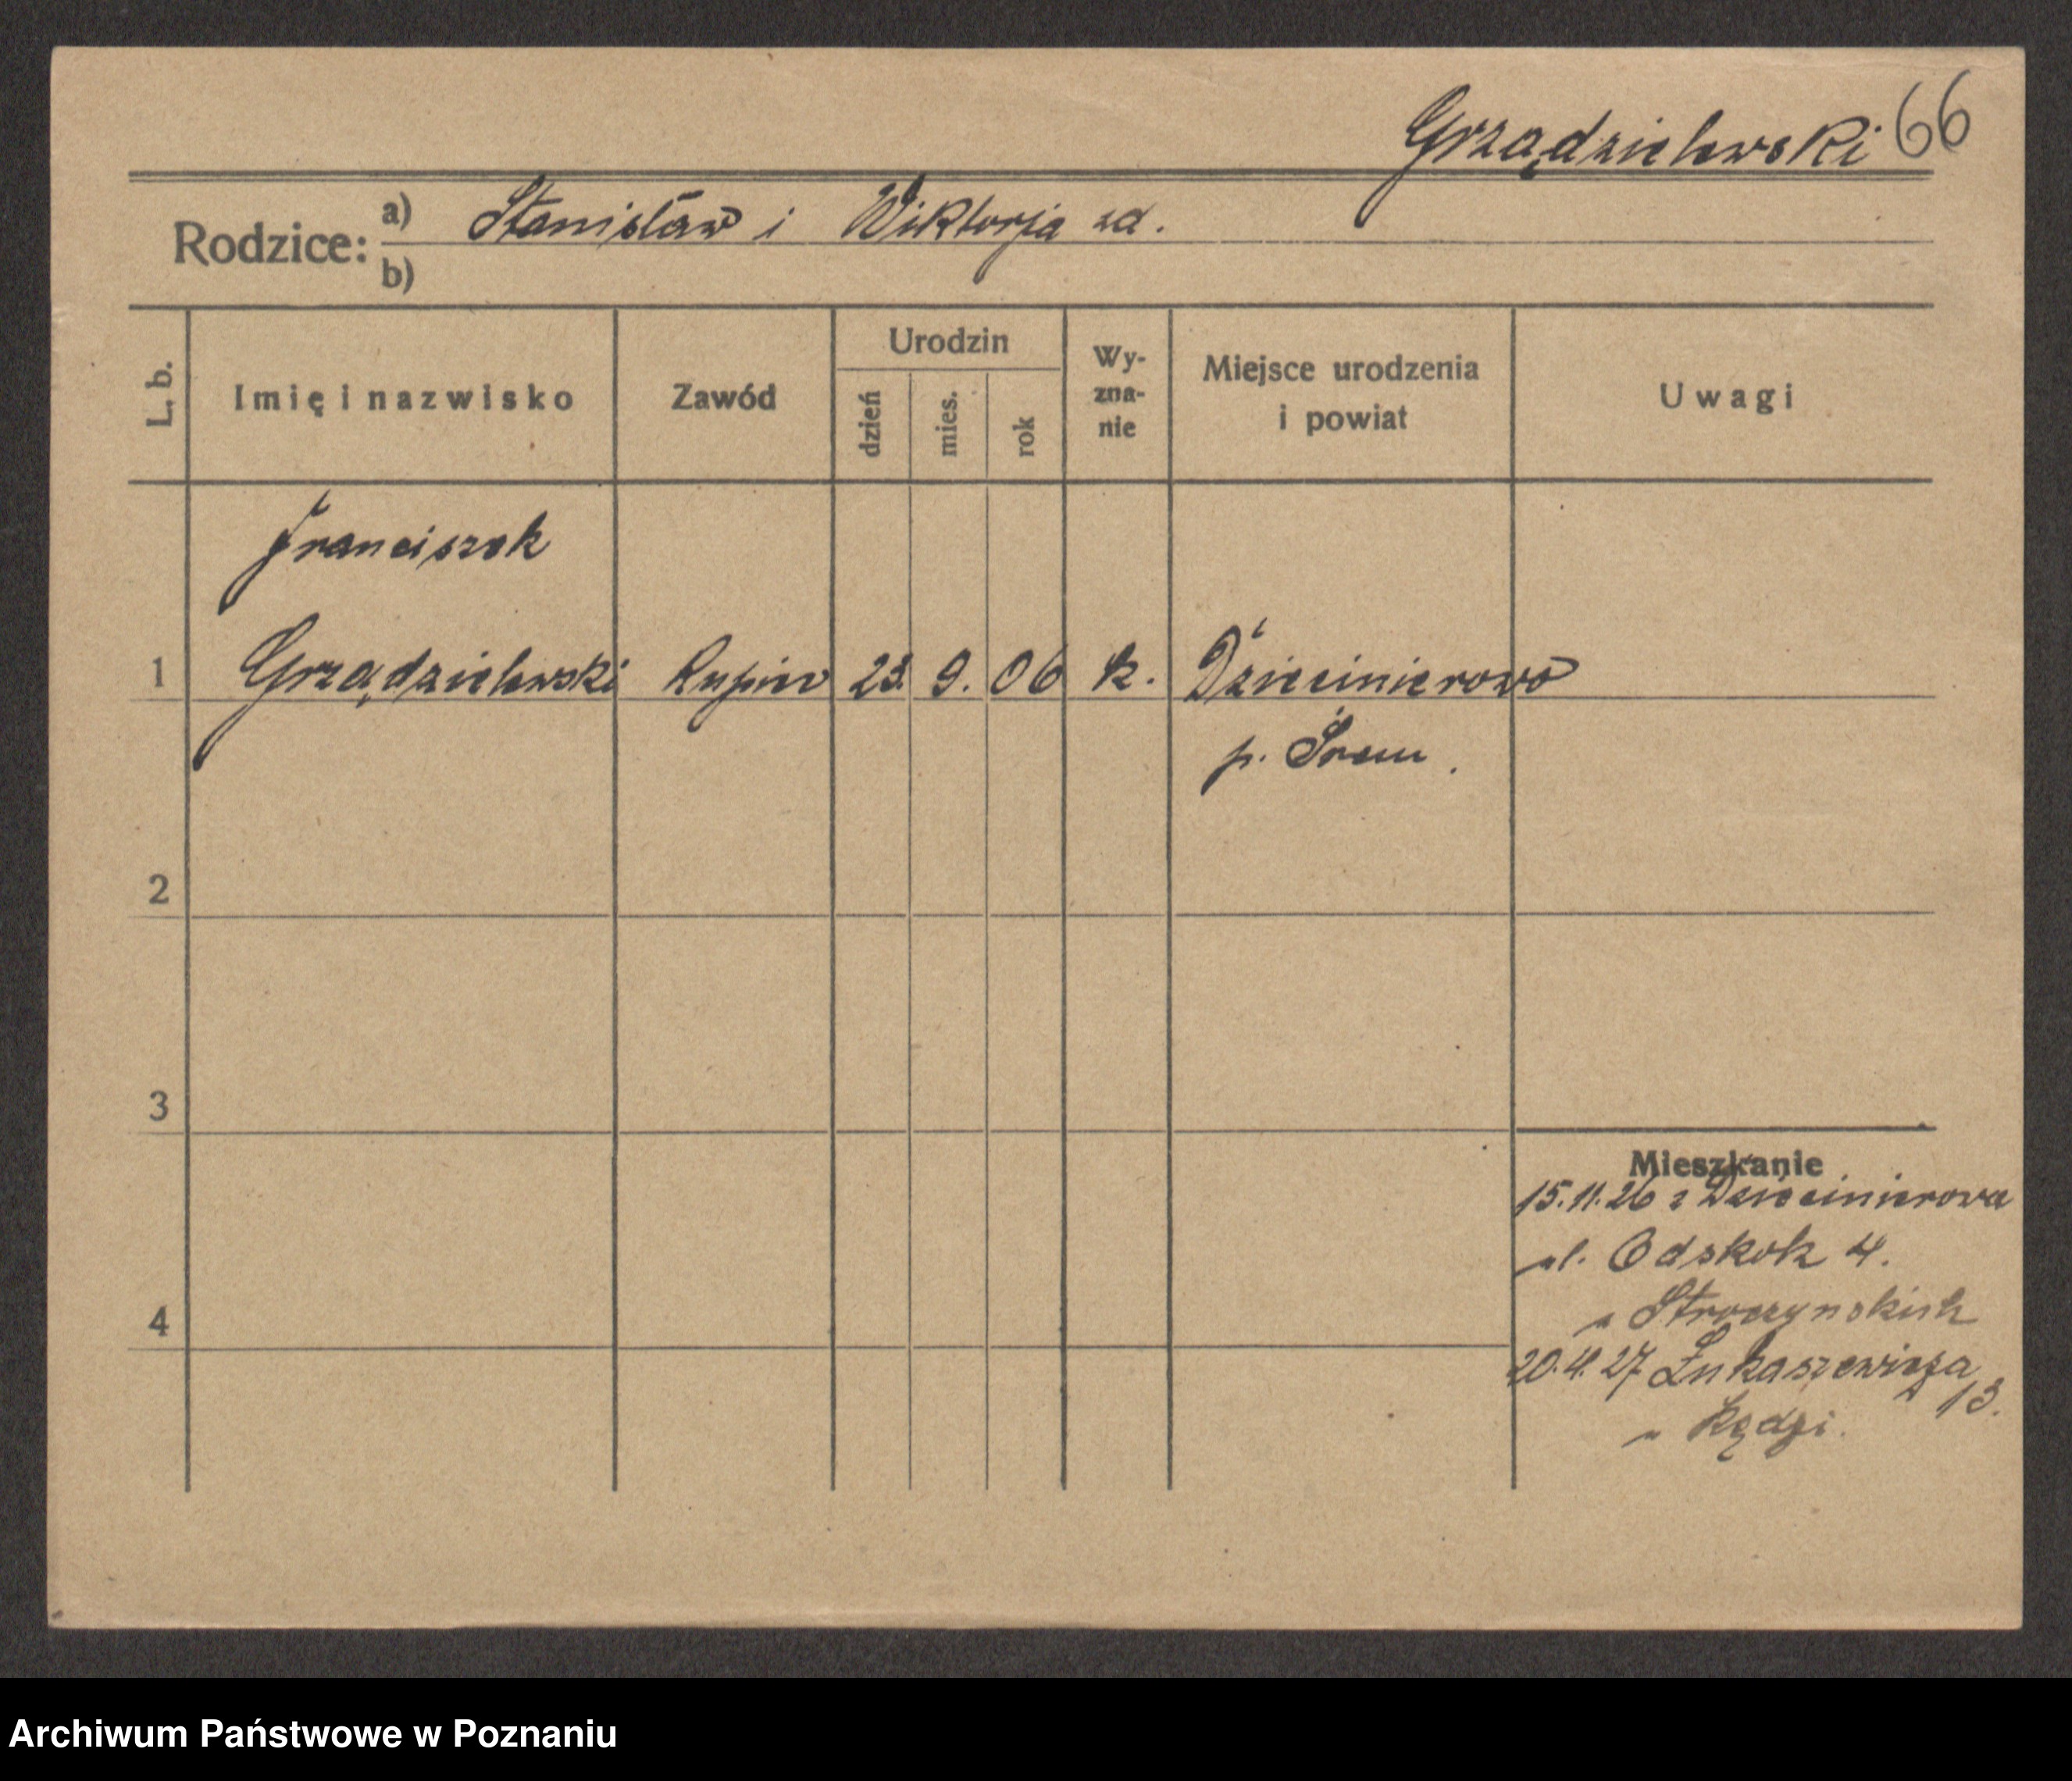 Grządzielewski 66
Rodzice: a) Stanisław i Wiktorja zd.
b)
L. b. Imię i nazwisko Zawód Urodzin dzień mies. rok Wy-zna-nie Miejsce urodzenia i powiat Uwagi
Franciszek
1 Grządzielewski Kupiec 23. 9. 06 k. Dziećmierowo
p. Śrem.
2
3
Mieszkanie
15.11.26 z Dziećmierowa
ul. Odskok 4.
" Stroczynskich
4
20.4.27 Łukaszewicza 13.
" Kędzi.
Archiwum Państwowe w Poznaniu